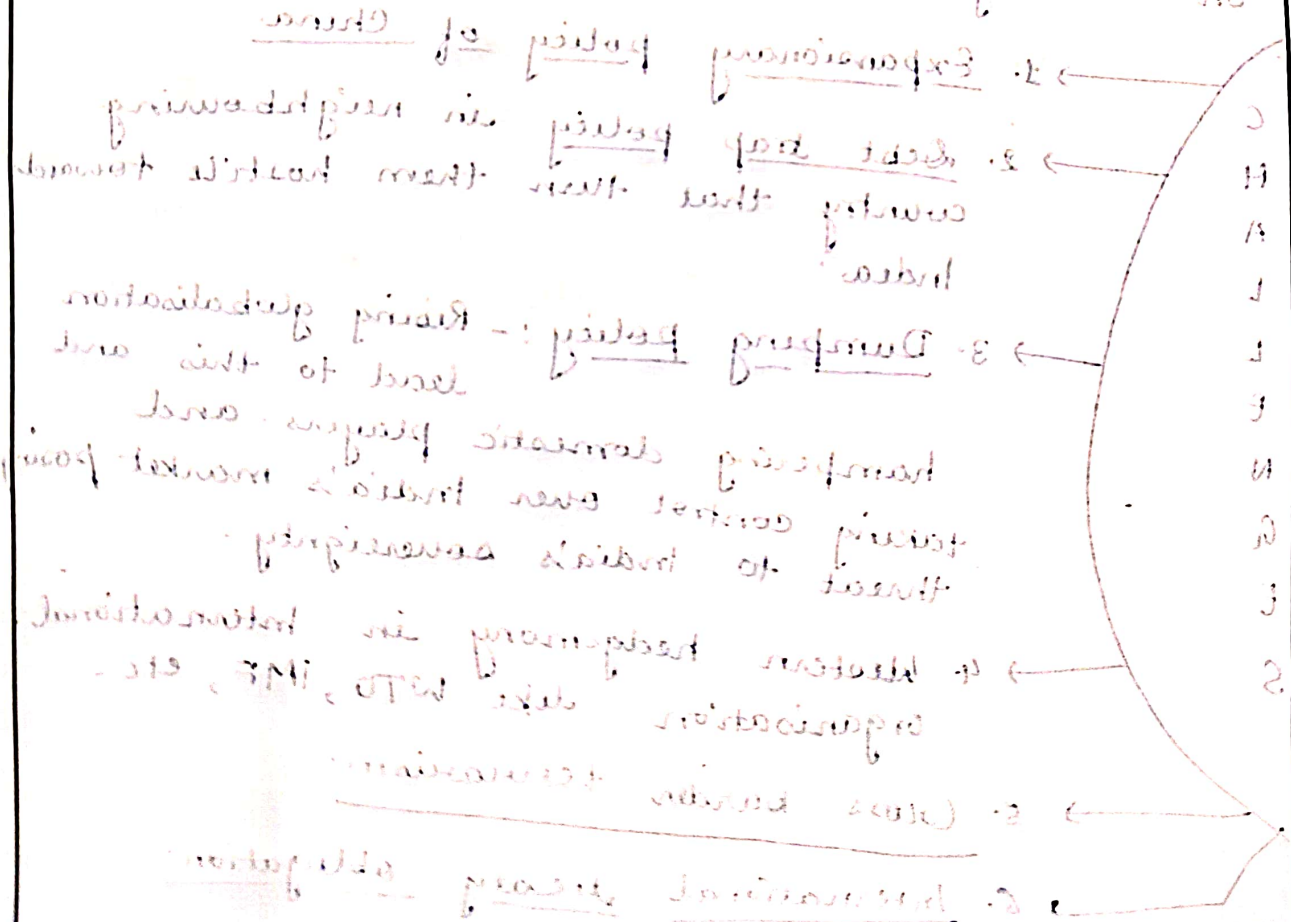 CHALLENGES
→ 1. Expansionary policy of China
→ 2. debt trap policy in neighbouring
country that turn them hostile toward
India.
→ 3. Dumping policy :- Rising globalisation
lead to this and
hampering domestic players and
taking control over India's market posing
threat to India's sovereignty.
→ 4. Western hedgemony in International
organisation like WTO, IMF, etc.
→ 5. Cross burder terrorism
→ 6. International treaty obligation